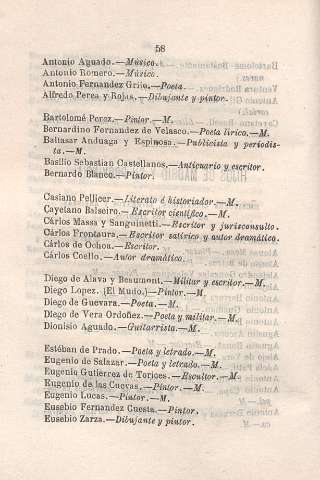 58
Antonio Aguado.—Músico.
Antonio Romero.—Músico.
Antonio Fernandez Grilo.—Poeta.
Alfredo Perea y Rojas.—Dibujante y pintor.
Bartolomé Perez.—Pintor.—M.
Bernardino Fernandez de Velasco.—Poeta lírico.—M.
Baltasar Anduaga y Espinosa.—Publicista y periodis-
ta.—M.
Basilio Sebastian Castellanos.—Anticuario y escritor.
Bernardo Blanco.—Pintor.
Casiano Pellicer.—Literato é historiador.—M.
Cayetano Balseiro.—Escritor científico.—M.
Cárlos Massa y Sanguinetti.—Escritor y jurisconsulto.
Cárlos Frontaura.—Escritor satírico y autor dramático.
Cárlos de Ochoa.—Escritor.
Cárlos Coello.—Autor dramático.
Diego de Alava y Beaumont.—Militar y escritor.—M.
Diego Lopez. (El Mudo.)—Pintor.—M.
Diego de Guevara.—Poeta.—M.
Diego de Vera Ordoñez.—Poeta y militar.—M.
Dionisio Aguado.—Guitarrista.—M.
Estéban de Prado.—Poeta y letrado.—M.
Eugenio de Salazar.—Poeta y letrado.—M.
Eugenio Gutierrez de Torices.—Escultor.—M.
Eugenio de las Cuevas.—Pintor.—M.
Eugenio Lucas.—Pintor.—M.
Eusebio Fernandez Cuesta.—Pintor.
Eusebio Zarza.—Dibujante y pintor.